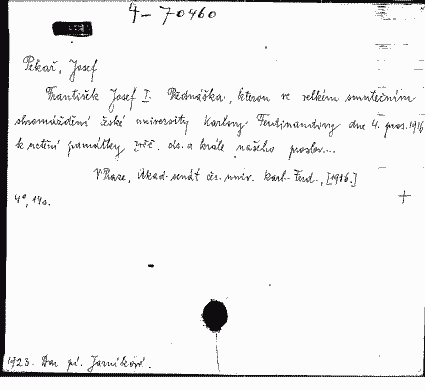 4-70460
Pekař, Josef
František Josef I. Přednáška, kterou ve velkém smutečním
shromáždění české university Karlovy Ferdinandovy dne 4. pros. 1916
k uctění památky zvěč. cís. a krále našeho proslov...
V Praze, Akad. senát čes. univ. Karl.-Ferd., [1916.]
4°, 14 s.
1923. Dar pí. Jarníkové.